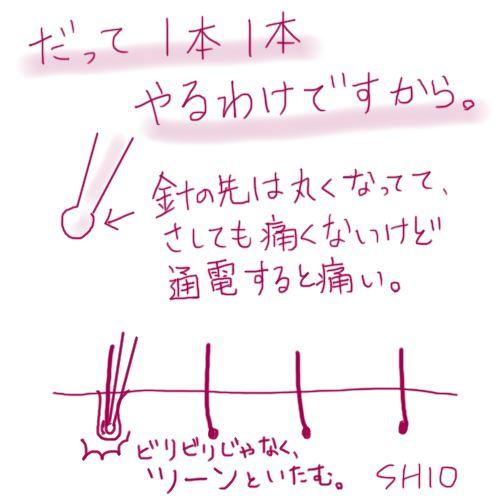 だって1本1本
やるわけですから。
針の先は丸くなってて、
さしても痛くないけど
通電すると痛い。
ビリビリじゃなく、
ツーンといたむ。
SHIO